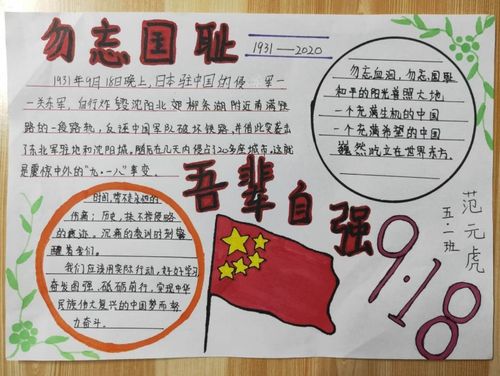 勿忘国耻
1931——2020
1931年9月18日晚上,日本驻中国的侵 军一
一关东军,自行炸毁沈阳北郊柳条湖附近南满铁
路的一段路轨,反诬中国军队破坏铁路,并借此突袭了
了东北军驻地和沈阳城。随后在几天内侵占20多座城市。这就
是震惊中外的“九·一八”事变。
勿忘血泪,勿忘国耻
和平的阳光普照大地
一个充满生机的中国
一个充满希望的中国
巍然屹立在世界东方。
吾辈自强
时间,带不走
伤痛;历史,抹不掉侵略
的痕迹。沉痛的教训时刻警
醒着我们。
我们应该用实际行动,好好学习
奋发图强、砥砺前行,实现中华
民族伟大复兴的中国梦而努
力奋斗。
9.18
范元虎
五.二班